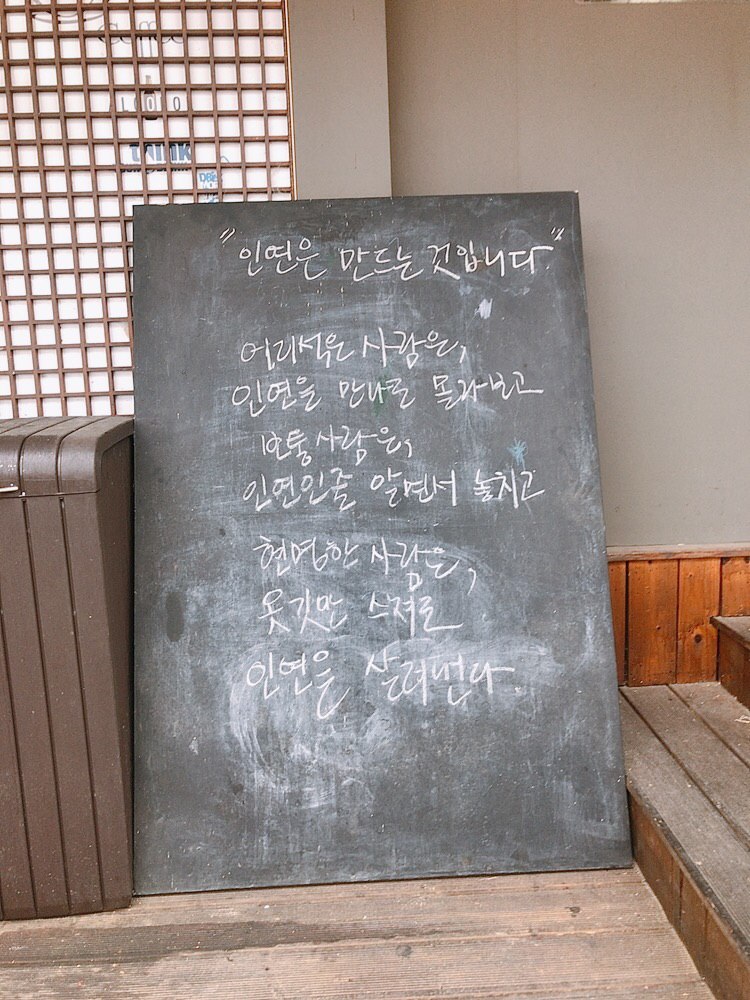 coffee
LOCO
DRINK
"인연은 만드는 것입니다."
어리석은 사람은,
인연을 만나를 몰라보고
보통사람은,
인연인줄 알면서 놓치고
현명한 사람은,
옷깃만 스쳐도
인연을 살려낸다.